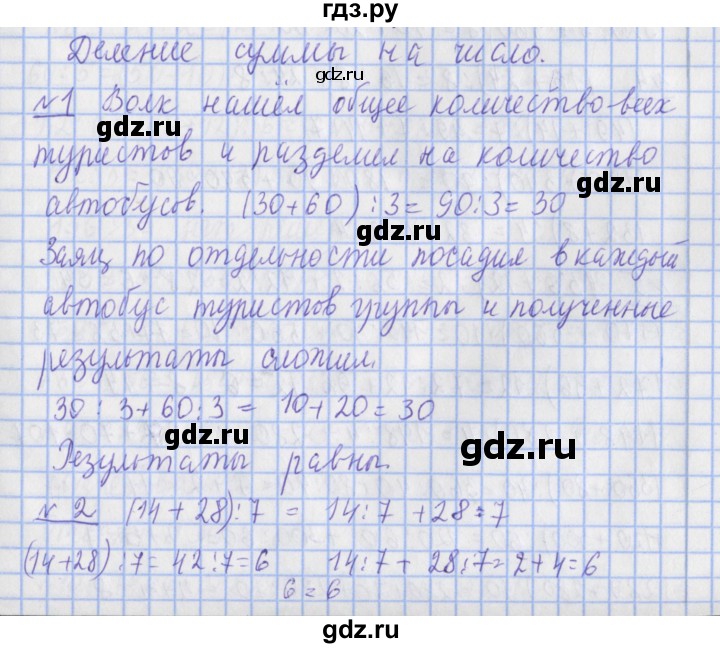 гдз.ру
Деление суммы на число.
gdz.ru
№1 Волк нашёл общее количество всех
gdz.ru
туристов и разделил на количество
gdz.ru
автобусов. (30+60):3=90:3=30
gdz.ru
Заяц по отдельности посадил в каждый
автобус туристов группы и полученные
gdz.ru
результаты сложил.
30:3+60:3= 10+20=30
gdz.ru
gdz.ru
Результаты равны.
№2 (14+28):7 = 14:7+28:7
gdz.ru
(14+28):7=42:7=6 14:7+28:7=2+4=6
6=6
gdz.ru